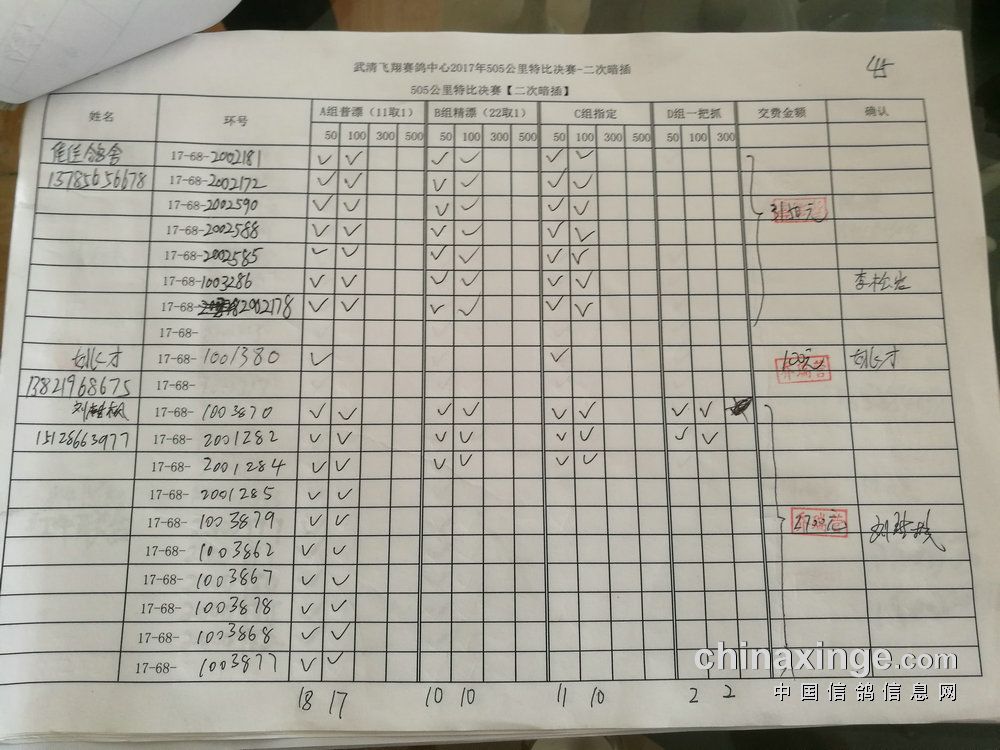 武清飞翔赛鸽中心2017年505公里特比决赛-二次暗插
505公里特比决赛【二次暗插】
姓名 环号 A组普漂（11取1） B组精漂（22取1） C组指定 D组一把抓 交费金额 确认
50 100 300 500 50 100 300 500 50 100 300 500 50 100 300
17-68-2002181 ✓ ✓ ✓ ✓ ✓ ✓
13785656678 17-68-2002172 ✓ ✓ ✓ ✓ ✓ ✓
17-68-2002590 ✓ ✓ ✓ ✓ ✓ ✓ 3150元
17-68-2002588 ✓ ✓ ✓ ✓ ✓ ✓
17-68-2002585 ✓ ✓ ✓ ✓ ✓ ✓
17-68-1003286 ✓ ✓ ✓ ✓ ✓ ✓ 李松岩
17-68-2002178 ✓ ✓ ✓ ✓ ✓ ✓
17-68-
17-68-1001380 ✓ ✓ 100元
13821968675 17-68-
17-68-1003870 ✓ ✓ ✓ ✓ ✓ ✓ ✓ ✓
15128663977 17-68-2001282 ✓ ✓ ✓ ✓ ✓ ✓ ✓ ✓
17-68-2001284 ✓ ✓ ✓ ✓ ✓ ✓
17-68-2001285 ✓ ✓
17-68-1003879 ✓ ✓ 2700元
17-68-1003862 ✓ ✓
17-68-1003867 ✓ ✓
17-68-1003878 ✓ ✓
17-68-1003868 ✓ ✓
17-68-1003877 ✓ ✓
18 17 10 10 11 10 2 2
chinaxinge.com
中国信鸽信息网